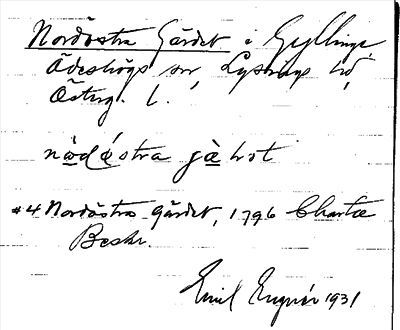 Nordöstra Gärdet i Gyllinge,
Ödeshögs sn, Lysings hd,
Österg. l.
nò̲dǿstra jà̲ḷot
*4 Nordöstra-gärdet, 1796 Chartæ
Beskr.
Emil Engnér 1931